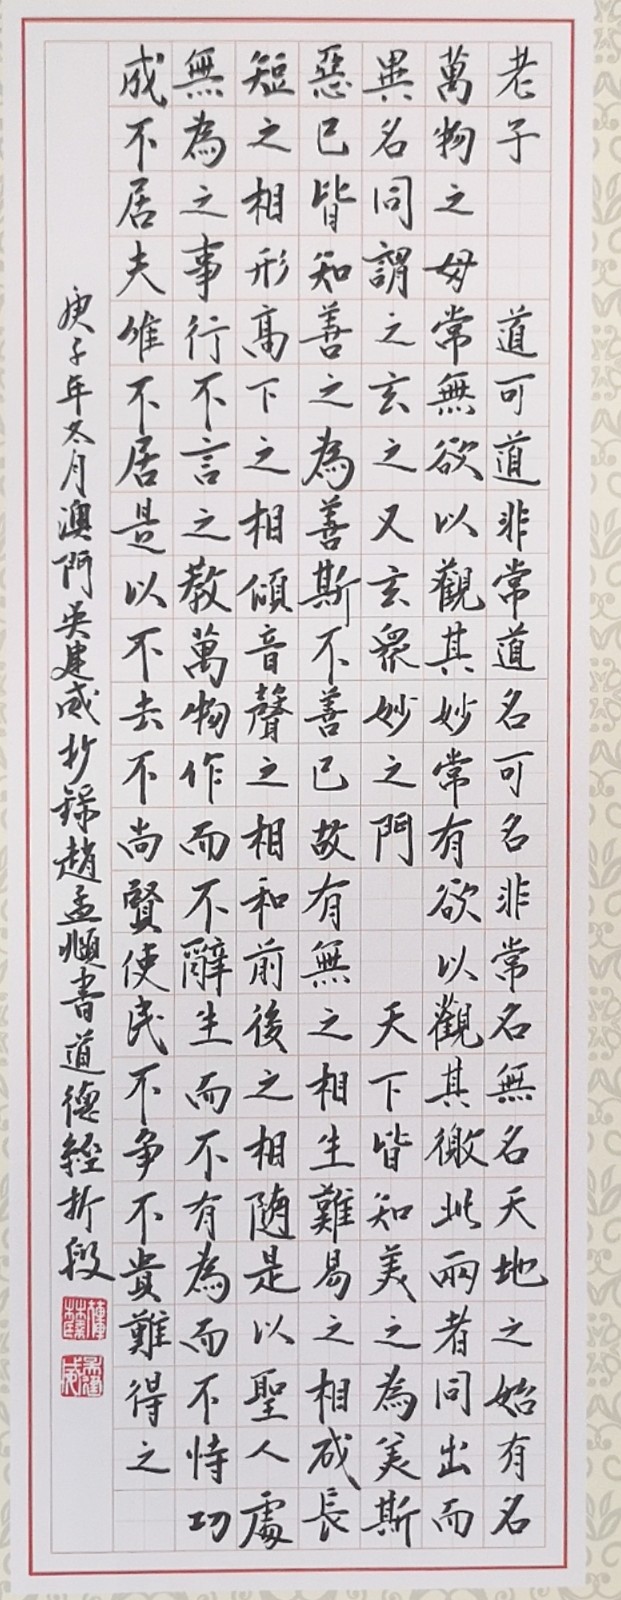 老子 道可道非常道名可名非常名無名天地之始有名
萬物之母常無欲以觀其妙常有欲以觀其徼此兩者同出而
異名同謂之玄之又玄眾妙之門 天下皆知美之為美斯
惡已皆知善之為善斯不善已故有無之相生難易之相成長
短之相形高下之相傾音聲之相和前後之相随是以聖人處
無為之事行不言之教萬物作而不辭生而不有為而不恃功
成不居夫唯不居是以不去不尚賢使民不争不貴難得之
庚子年冬月澳門吳建威抄錄趙孟頫書道德經折段